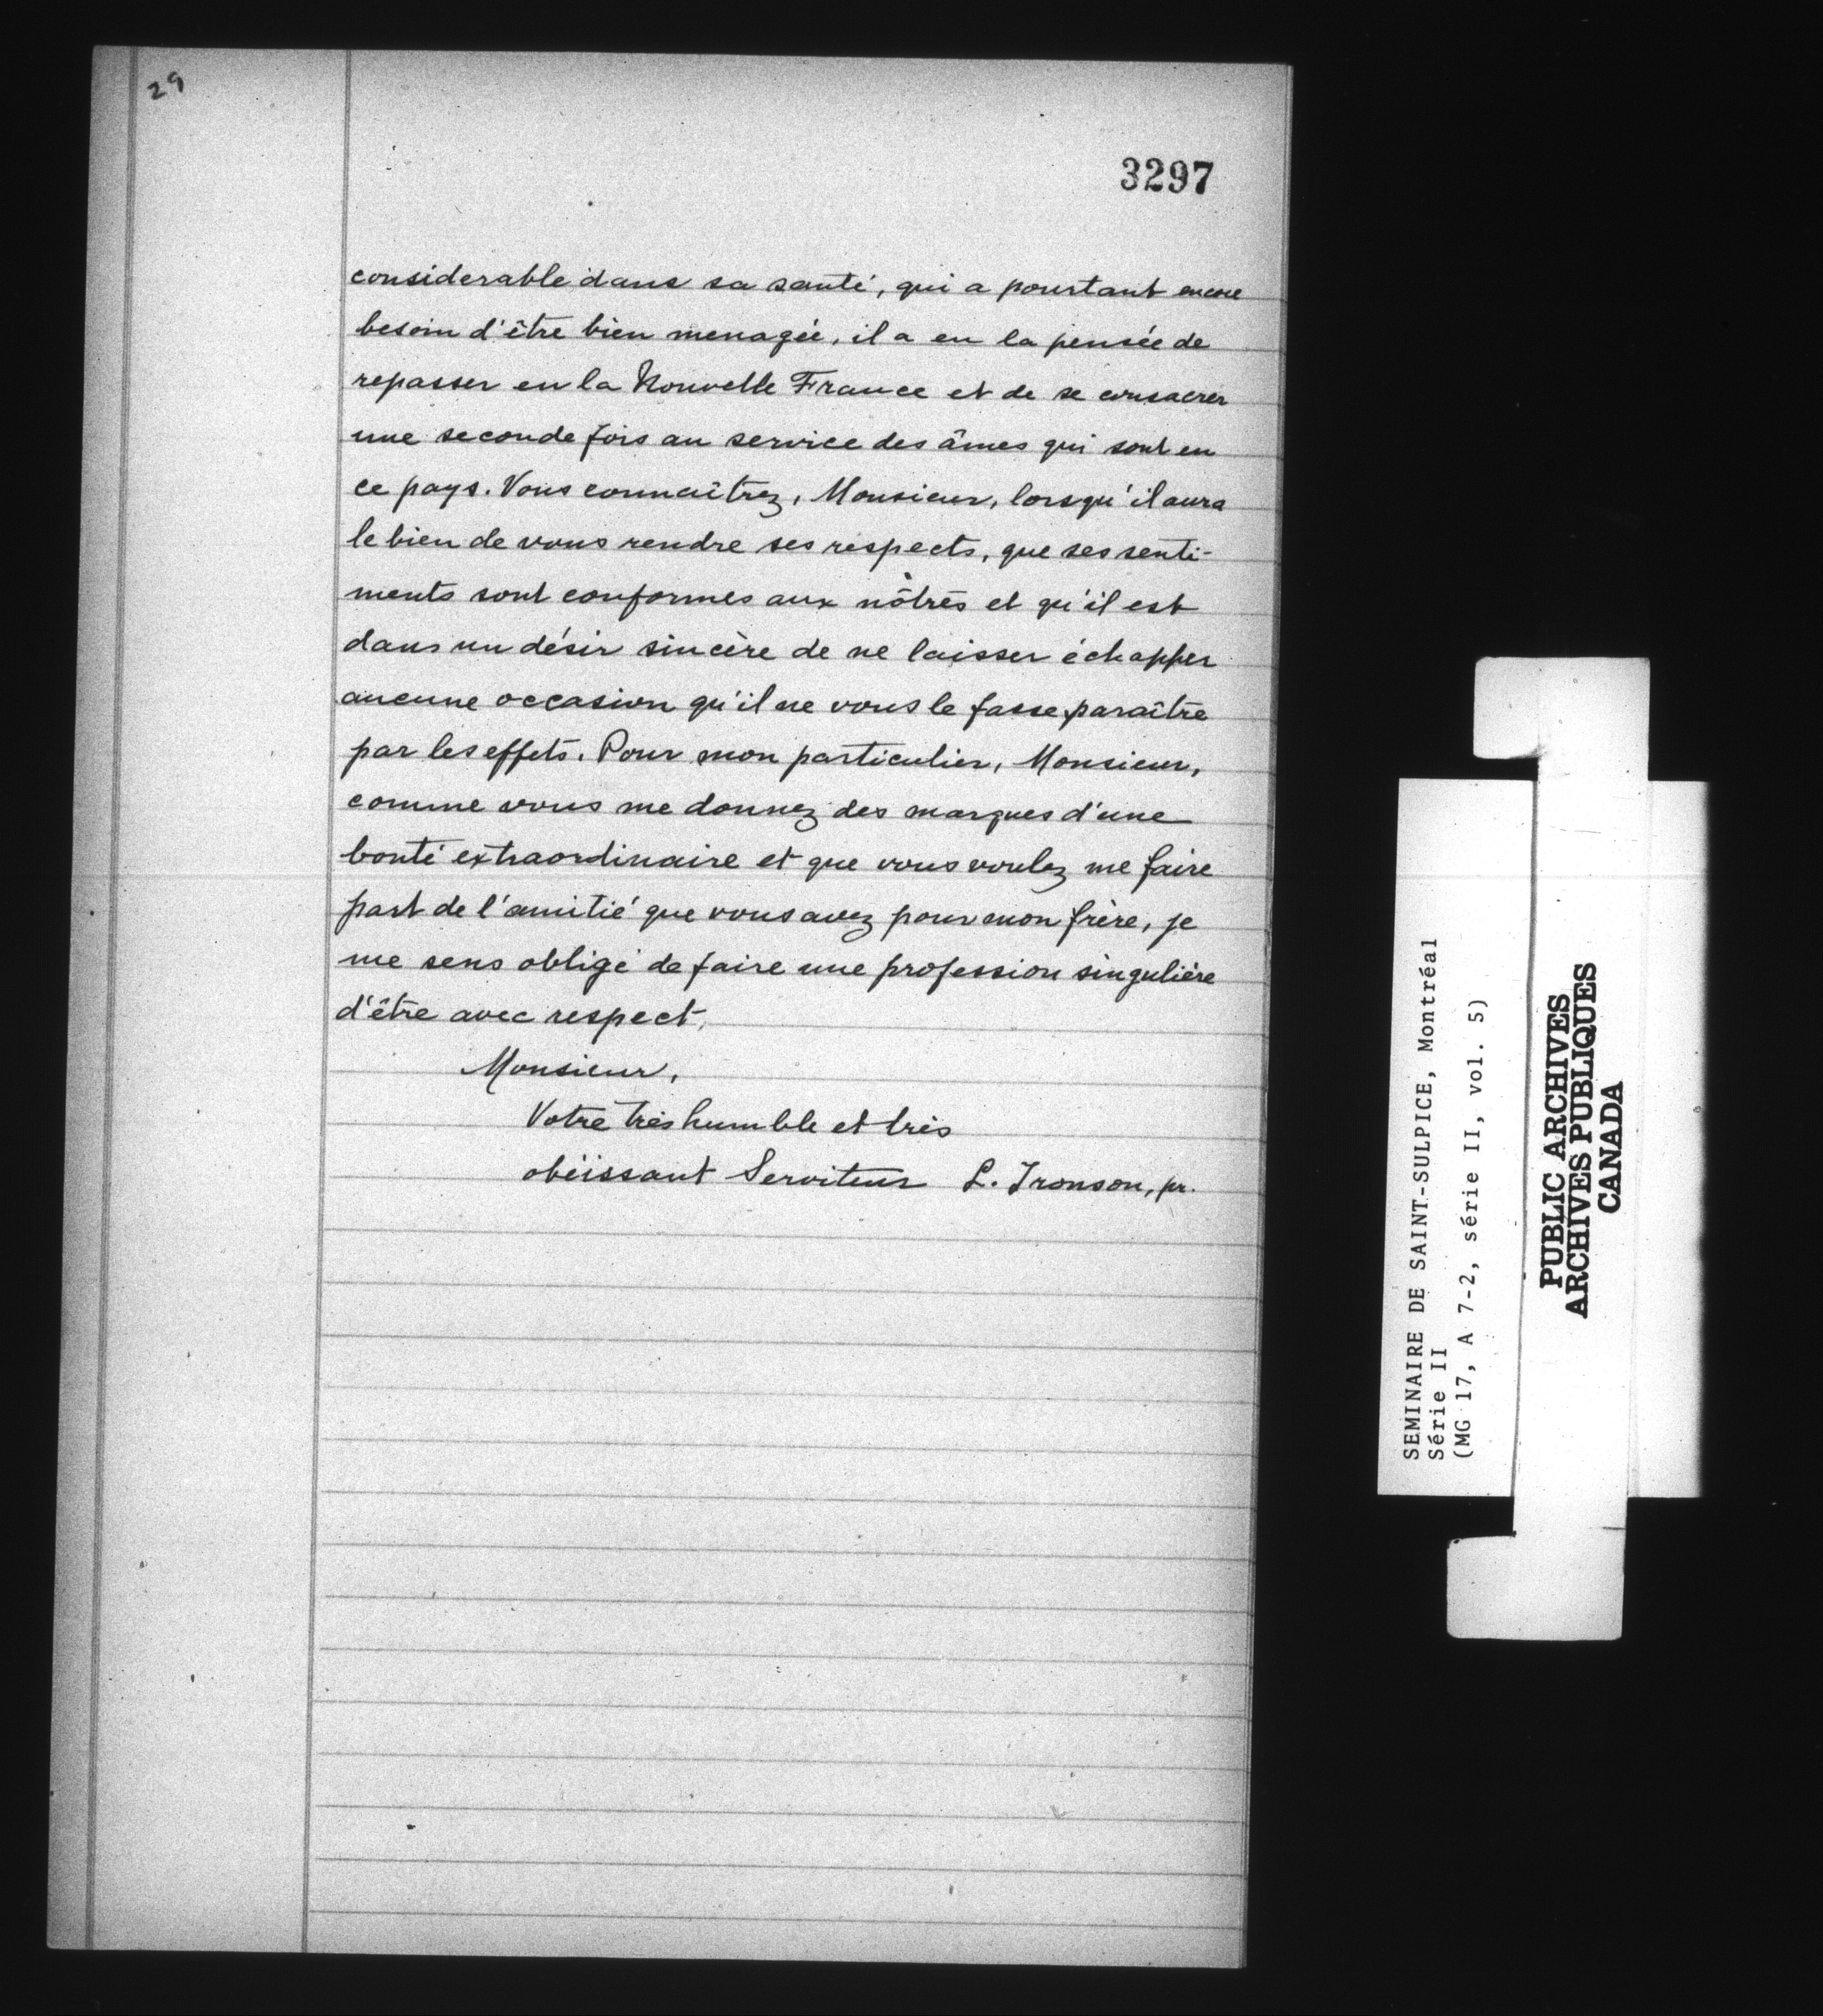 29
3297
considerable dans sa santé, qui a pourtant encore
besoin d'être bien menagée, il a eu la pensée de
repasser en la Nouvelle France et de se consacrer
une seconde fois au service des âmes qui sont en
ce pays. Vous connaîtrez, Monsieur, lorsqu'il aura
le bien de vous rendre ses respects, que ses senti-
ments sont conformes aux nôtres et qu'il est
dans un désir sincère de ne laisser échapper
aucune occasion qu'il ne vous le fasse paraître
par les effets. Pour mon particulier, Monsieur,
comme vous me donnez des marques d'une
bonté extraordinaire et que vous voulez me faire
part de l'amitié que vous avez pour mon frère, je
me sens obligé de faire une profession singulière
d'être avec respect,
Monsieur,
Votre très humble et très
obéissant Serviteur L. Tronson, pr.
SEMINAIRE DE SAINT-SULPICE, Montréal
Série II
(MG 17, A 7-2, série II, vol. 5)
PUBLIC ARCHIVES
ARCHIVES PUBLIQUES
CANADA